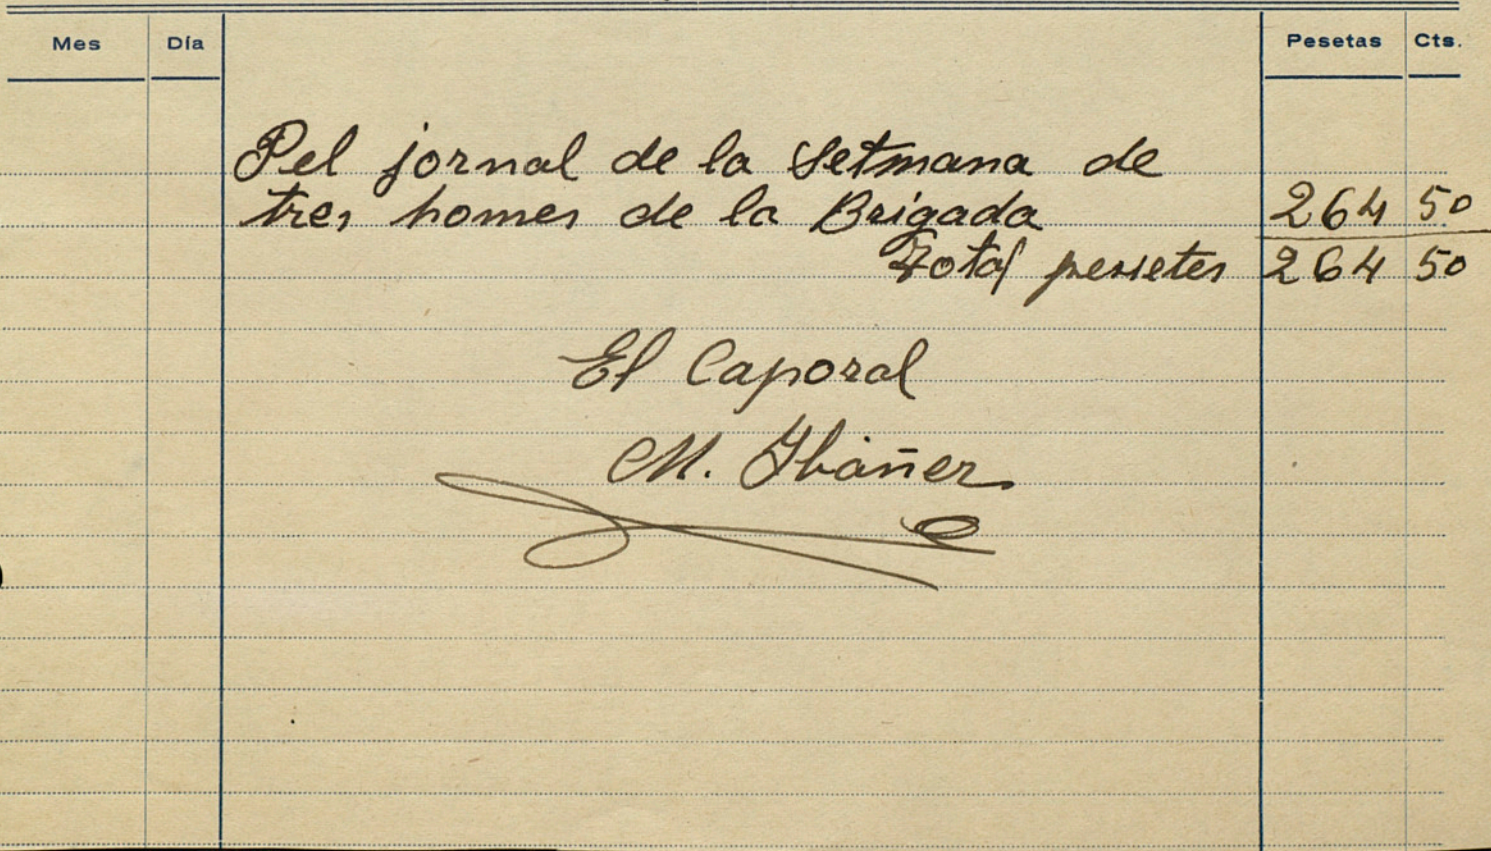 Mes Día Pesetas Cts.
Pel jornal de la Setmana de
tres homes de la Brigada 264 50
Total pessetes 264 50
El Caporal
M. Ibáñez